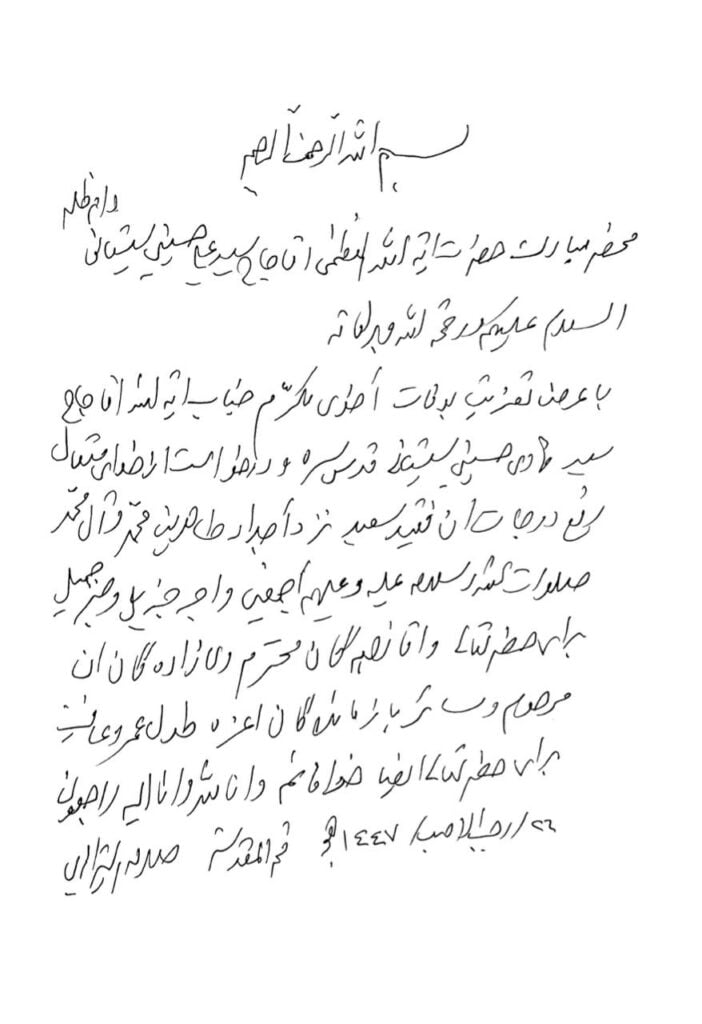 بسم الله الرحمن الرحیم
محضر مبارک حضرت ایة الله العظمی اقا حاج سید علی حسینی سیستانی دام ظله
السلام علیکم ورحمة الله وبرکاته
با عرض تعزیت بوفات أخوی مکرّم جناب ایة الله اقا حاج
سید هادی حسینی سیستانی قدس سره و درخواست از خدای متعال
رفع درجات ان فقید سعید نزد أجداد طاهرین محمّد وآل محمّد
صلوات الله وسلامه علیه وعلیهم أجمعین واجر جزیل وصبر جمیل
برای حضرتعالی واقا زاده گان ان
مرحوم وسائر بازمانده گان اعزه طول عمر وعافیت
برای حضرتعالی خواهانم وانا لله وانا الیه راجعون
٢٢/رجب الاصب/١٤٤٧ هج قم المقدسة